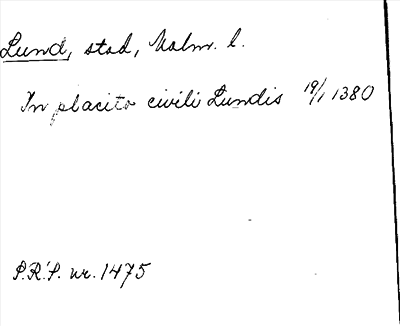 Lund, stad, Malm. l.
In placito civili Lundis 19/1 1380
P.R.'S. nr. 1475